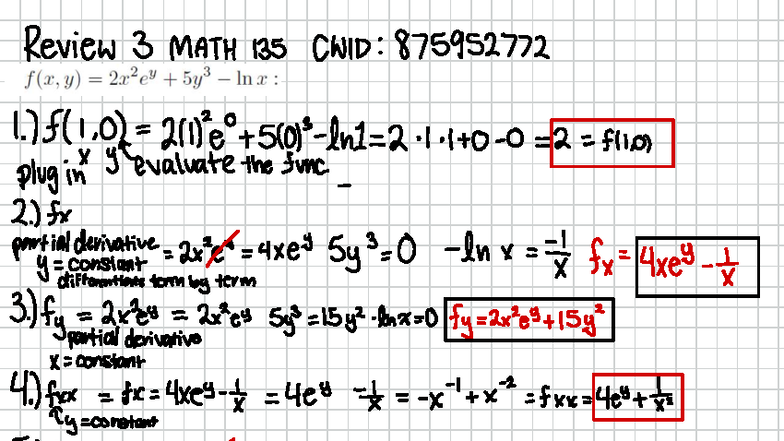 Review 3 MATH 135 CWID: 875952772
f(x, y) = 2x²e^y + 5y³ − ln x :
1.) f(1,0) = 2(1)²e⁰ + 5(0)³ - ln1 = 2 · 1 · 1 + 0 - 0 = 2 = f(1,0)
plug in x y evaluate the func
2.) fx
partial derivative = 2x²e^y = 4xe^y 5y³ = 0 -ln x = -1/x fx = 4xe^y - 1/x
y = constant
differentiate term by term
3.) fy = 2x²e^y = 2x²e^y 5y³ = 15y² - ln x = 0 fy = 2x²e^y + 15y²
partial derivative
x = constant
4.) fxx = fx = 4xe^y - 1/x = 4e^y -1/x = -x⁻¹ + x⁻² = fxx = 4e^y + 1/x²
↑y = constant